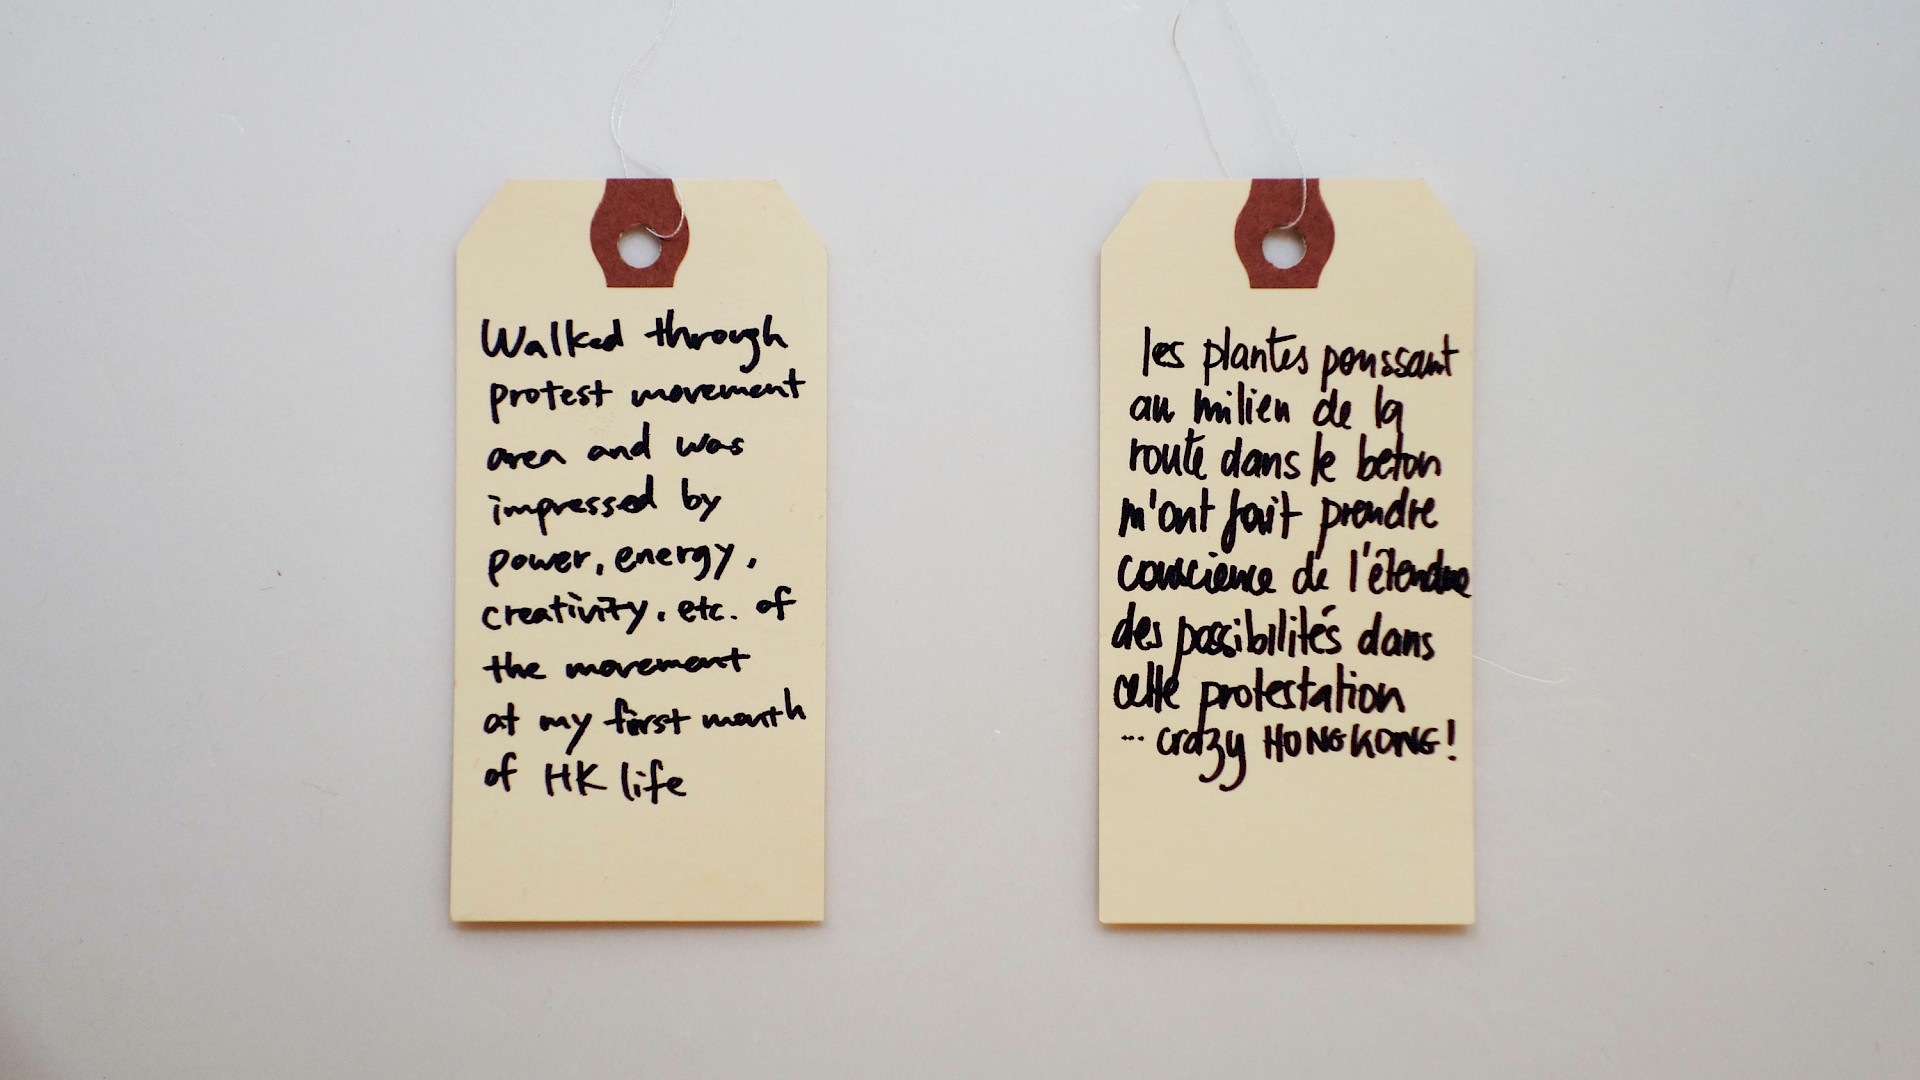 Walked through
protest movement
area and was
impressed by
power, energy,
creativity, etc. of
the movement
at my first month
of HK life
les plantes poussant
au milieu de la
route dans le beton
m'ont fait prendre
conscience de l'étendue
des possibilités dans
cette protestation
... crazy HONG KONG!